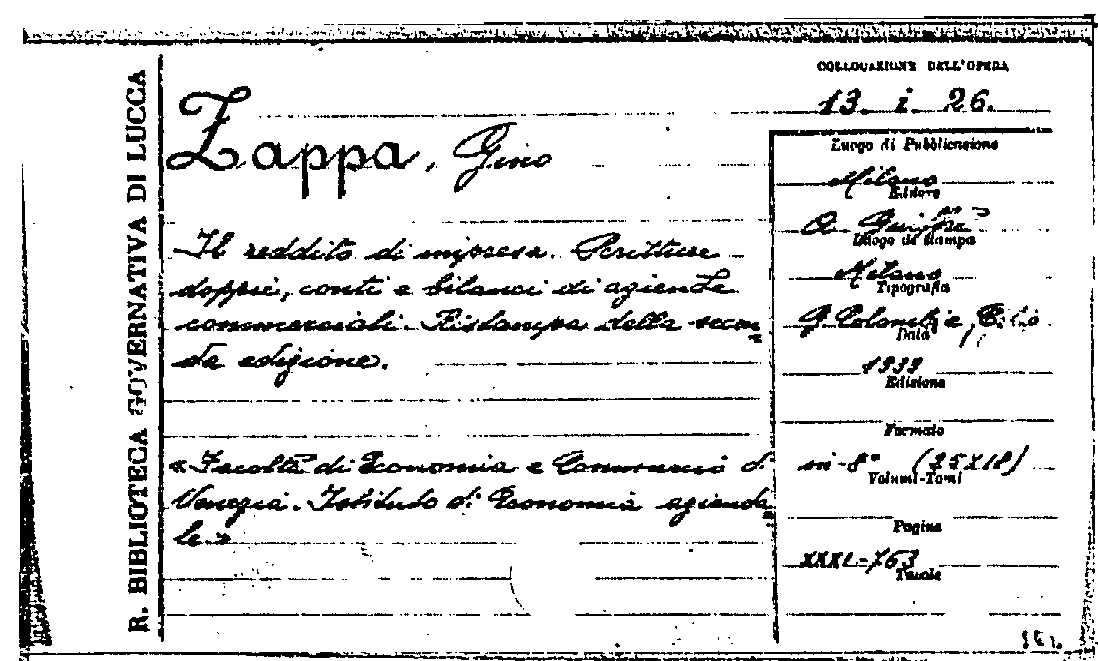 R. BIBLIOTECA GOVERNATIVA DI LUCCA
COLLOCAZIONE DELL'OPERA
13. i. 26.
Zappa, Gino
Il reddito di impresa. Scritture
doppie, conti e bilanci di aziende
commerciali. Ristampa della secon
da edizione.
« Facoltà di Economia e Commercio di
Venezia. Istituto di Economia azienda
le »
Luogo di Pubblicazione
Milano
Editore
A. Giuffrè
Luogo di Stampa
Milano
Tipografia
G. Colombi e
Data
1939
Edizione
Formato
in-8° (25X18)
Volumi-Tomi
Pagine
XXXI-763
Tavole